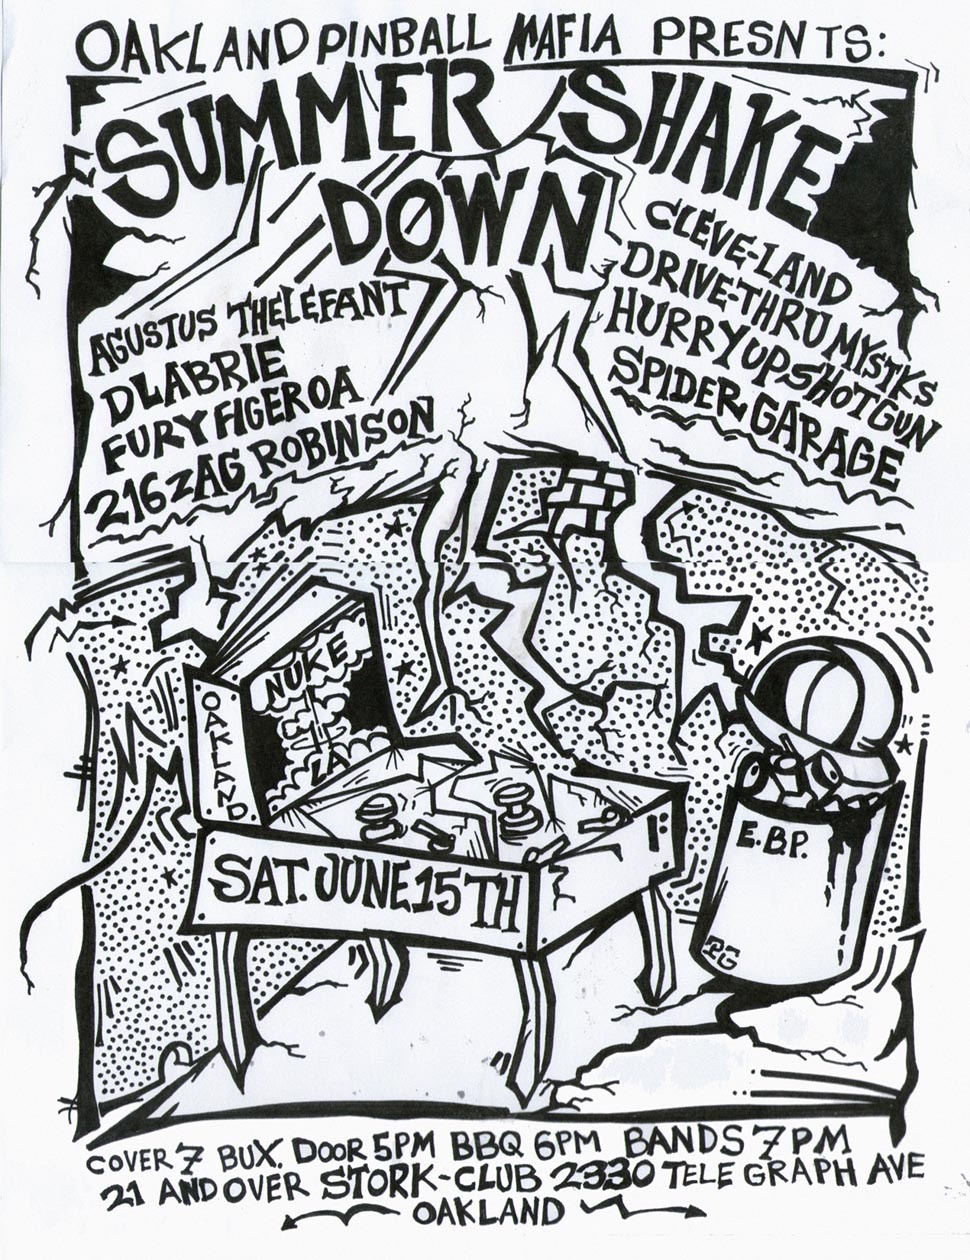 OAKLAND PINBALL MAFIA PRESNTS:
SUMMER SHAKE
DOWN
AGUSTUS THELEFANT
DLABRIE
FURY FIGEROA
216 ZAG ROBINSON
CLEVE-LAND
DRIVE-THRU MYSTKS
HURRY UP SHOTGUN
SPIDER GARAGE
NUKE
LA
OAKLAND
E.B.P.
SAT. JUNE 15TH
COVER 7 BUX. DOOR 5PM BBQ 6PM BANDS 7PM
21 AND OVER STORK-CLUB 2330 TELEGRAPH AVE
OAKLAND